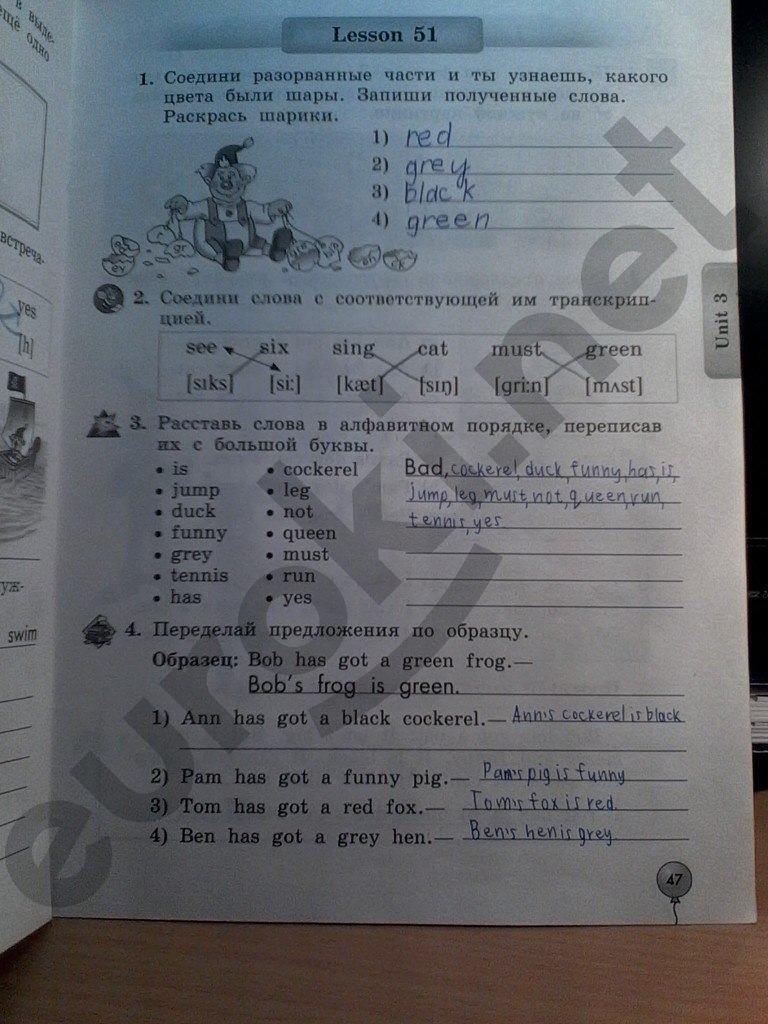 в выде-
ещё одно
встреча-
yes
[h]
уж-
swim
Lesson 51
1. Соедини разорванные части и ты узнаешь, какого
цвета были шары. Запиши полученные слова.
Раскрась шарики.
1) red
2) grey
3) black
4) green
2. Соедини слова с соответствующей им транскрип-
цией.
see six sing cat must green
[sıks] [si:] [kæt] [sıŋ] [gri:n] [mʌst]
Unit 3
3. Расставь слова в алфавитном порядке, переписав
их с большой буквы.
• is • cockerel Bad, cockerel, duck, funny, has, is,
• jump • leg jump, leg, must, not, queen, run,
• duck • not tennis, yes
• funny • queen
• grey • must
• tennis • run
• has • yes
4. Переделай предложения по образцу.
Образец: Bob has got a green frog.—
Bob's frog is green.
1) Ann has got a black cockerel.— Ann's cockerel is black
2) Pam has got a funny pig.— Pam's pig is funny
3) Tom has got a red fox.— Tom's fox is red.
4) Ben has got a grey hen.— Ben's hen is grey
47
euroki.net